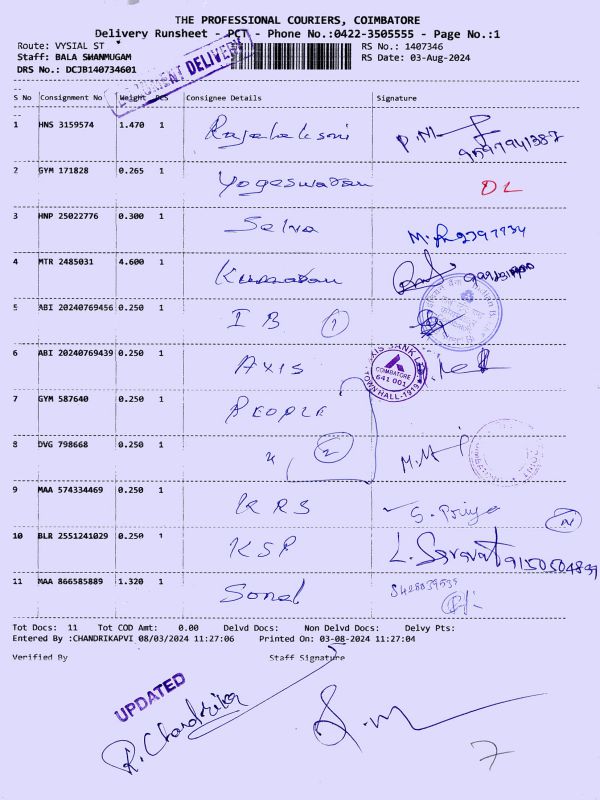 THE PROFESSIONAL COURIERS, COIMBATORE
Delivery Runsheet - PCT - Phone No.:0422-3505555 - Page No.:1
Route: VYSIAL ST
RS No.: 1407346
Staff: BALA SHANMUGAM
RS Date: 03-Aug-2024
DRS No.: DCJB140734601
DELIVERY
S No Consignment No Weight Pcs Consignee Details Signature
1 HNS 3159574 1.470 1 Rajalaksmi
9597941387
2 GYM 171828 0.265 1 Yogeswaran DL
3 HNP 25022776 0.300 1 Selva
4 MTR 2485031 4.600 1 Kumaran
5 ABI 20240769456 0.250 1 IB 1
6 ABI 20240769439 0.250 1 AXIS
AXIS BANK LTD
COIMBATORE
641 001
TOWN HALL-1919
7 GYM 587640 0.250 1 PEOPLE
8 DVG 798668 0.250 1 " 2
9 MAA 574334469 0.250 1 KRS S. Priya
10 BLR 2551241029 0.250 1 KSP L. Saravat 9150504899
11 MAA 866585889 1.320 1 Sonal
Tot Docs: 11 Tot COD Amt: 0.00 Delvd Docs: Non Delvd Docs: Delvy Pts:
Entered By :CHANDRIKAPVI 08/03/2024 11:27:06 Printed On: 03-08-2024 11:27:04
Verified By Staff Signature
UPDATED
R. Chandrika
7